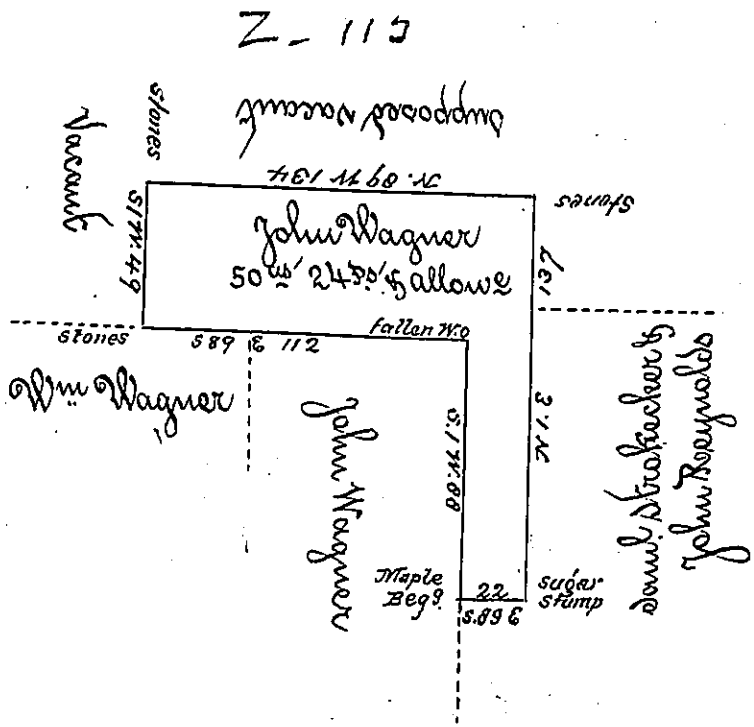 Z-115
supposed vacant
stones
Vacant
N. 89 W 134
stones
S 1 W. 49
John Wagner
50 as, 24 ps, & allowe
137
N. 1 E
stones
S 89 E 112
fallen W.o
Wm Wagner
John Wagner
S. 1 W. 88
Saml. Strohecker &
John Reynolds
Maple
Beg g.
22
S. 89 E
sugar
stump